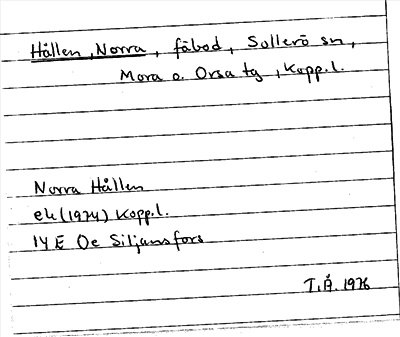 Hållen, Norra, fäbod, Sollerö sn,
Mora o. Orsa tg, Kopp.l.
Norra Hållen
ek (1974) Kopp.l.
14 E Oe Siljansfors
T.Å. 1976